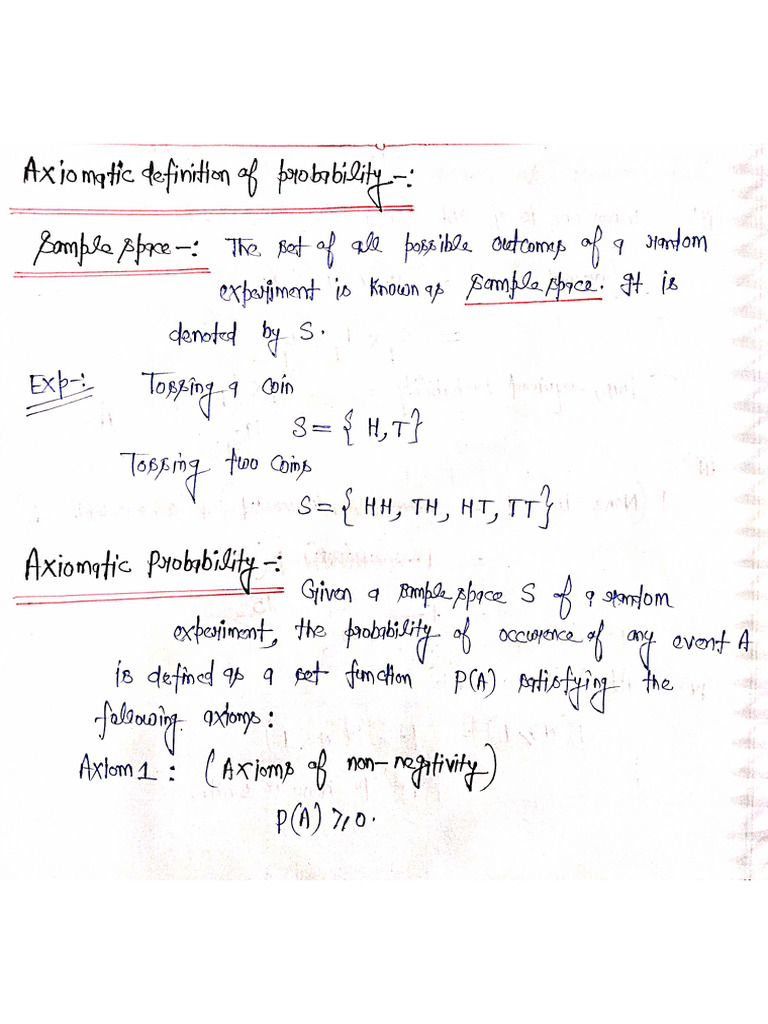 Axiomatic definition of probability -:
Sample space -: The set of all possible outcomes of a random
experiment is known as sample space. It is
denoted by S.
Exp-: Tossing a coin
S = { H, T }
Tossing two coins
S = { HH, TH, HT, TT }
Axiomatic Probability -:
Given a sample space S of a random
experiment, the probability of occurence of any event A
is defined as a set function P(A) satisfying the
following axioms:
Axiom 1 : (Axioms of non-negativity)
P(A) ≥ 0.